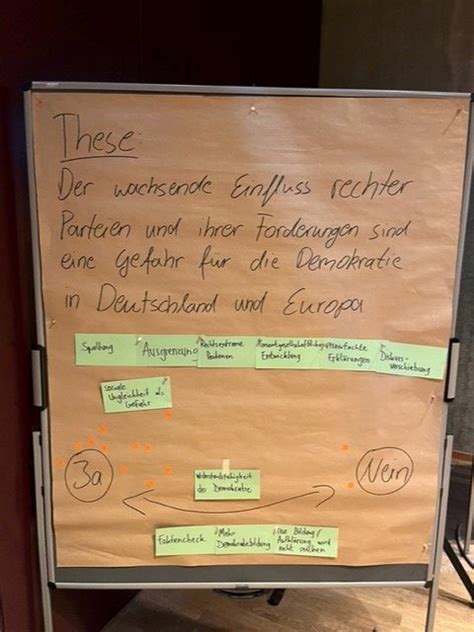 These:
Der wachsende Einfluss rechter
Parteien und ihrer Forderungen sind
eine Gefahr für die Demokratie
in Deutschland und Europa
Spaltung
Ausgrenzung
Rechtsextreme
Positionen
Entwicklung
Vereinfachte
Erklärungen
Diskurs-
verschiebung
soziale
Ungleichheit als
Gefahr
Ja
Nein
Widerstandsfähigkeit
der Demokratie
Faktencheck
Mehr
Demokratiebildung
Bildung/
Aufklärung wird
nicht